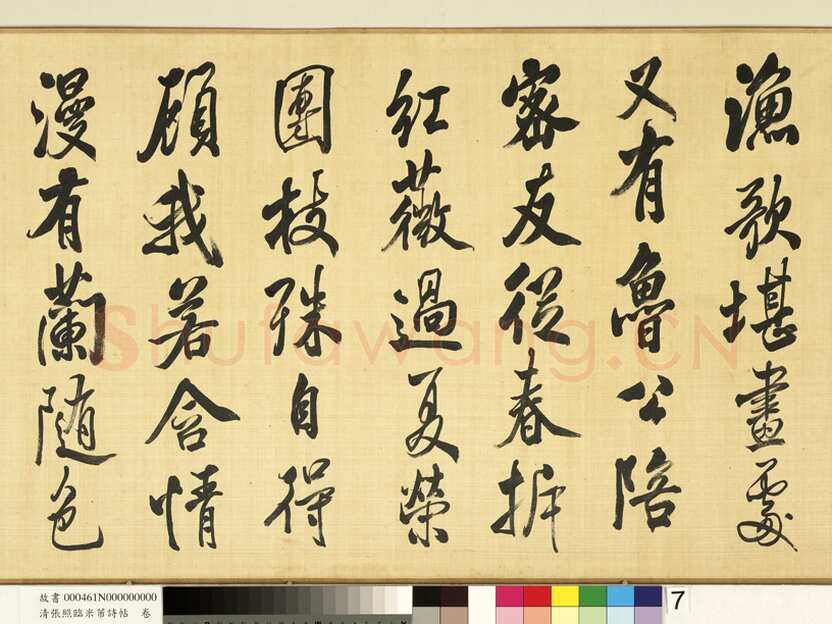 漁歌堪畫處
又有魯公陪
密友從春拆
紅薇過夏榮
團枝殊自得
顧我若含情
漫有蘭隨色
Shufawang.CN
故書 000461N000000000
清張照臨米芾詩帖 卷
7